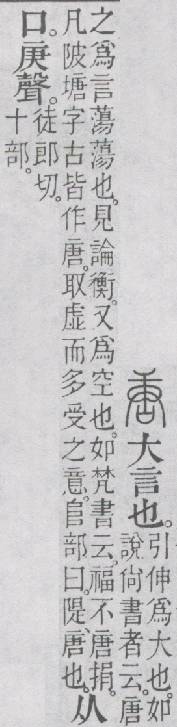 唐大言也。
引伸爲大也。如
說尚書者云。唐
之爲言蕩蕩也。見論衡。又爲空也。如梵書云。福不唐捐。
凡陂塘字古皆作唐。取虛而多受之意。𨸏部曰。隄、唐也。
从
口。庚聲。
徒郎切。
十部。